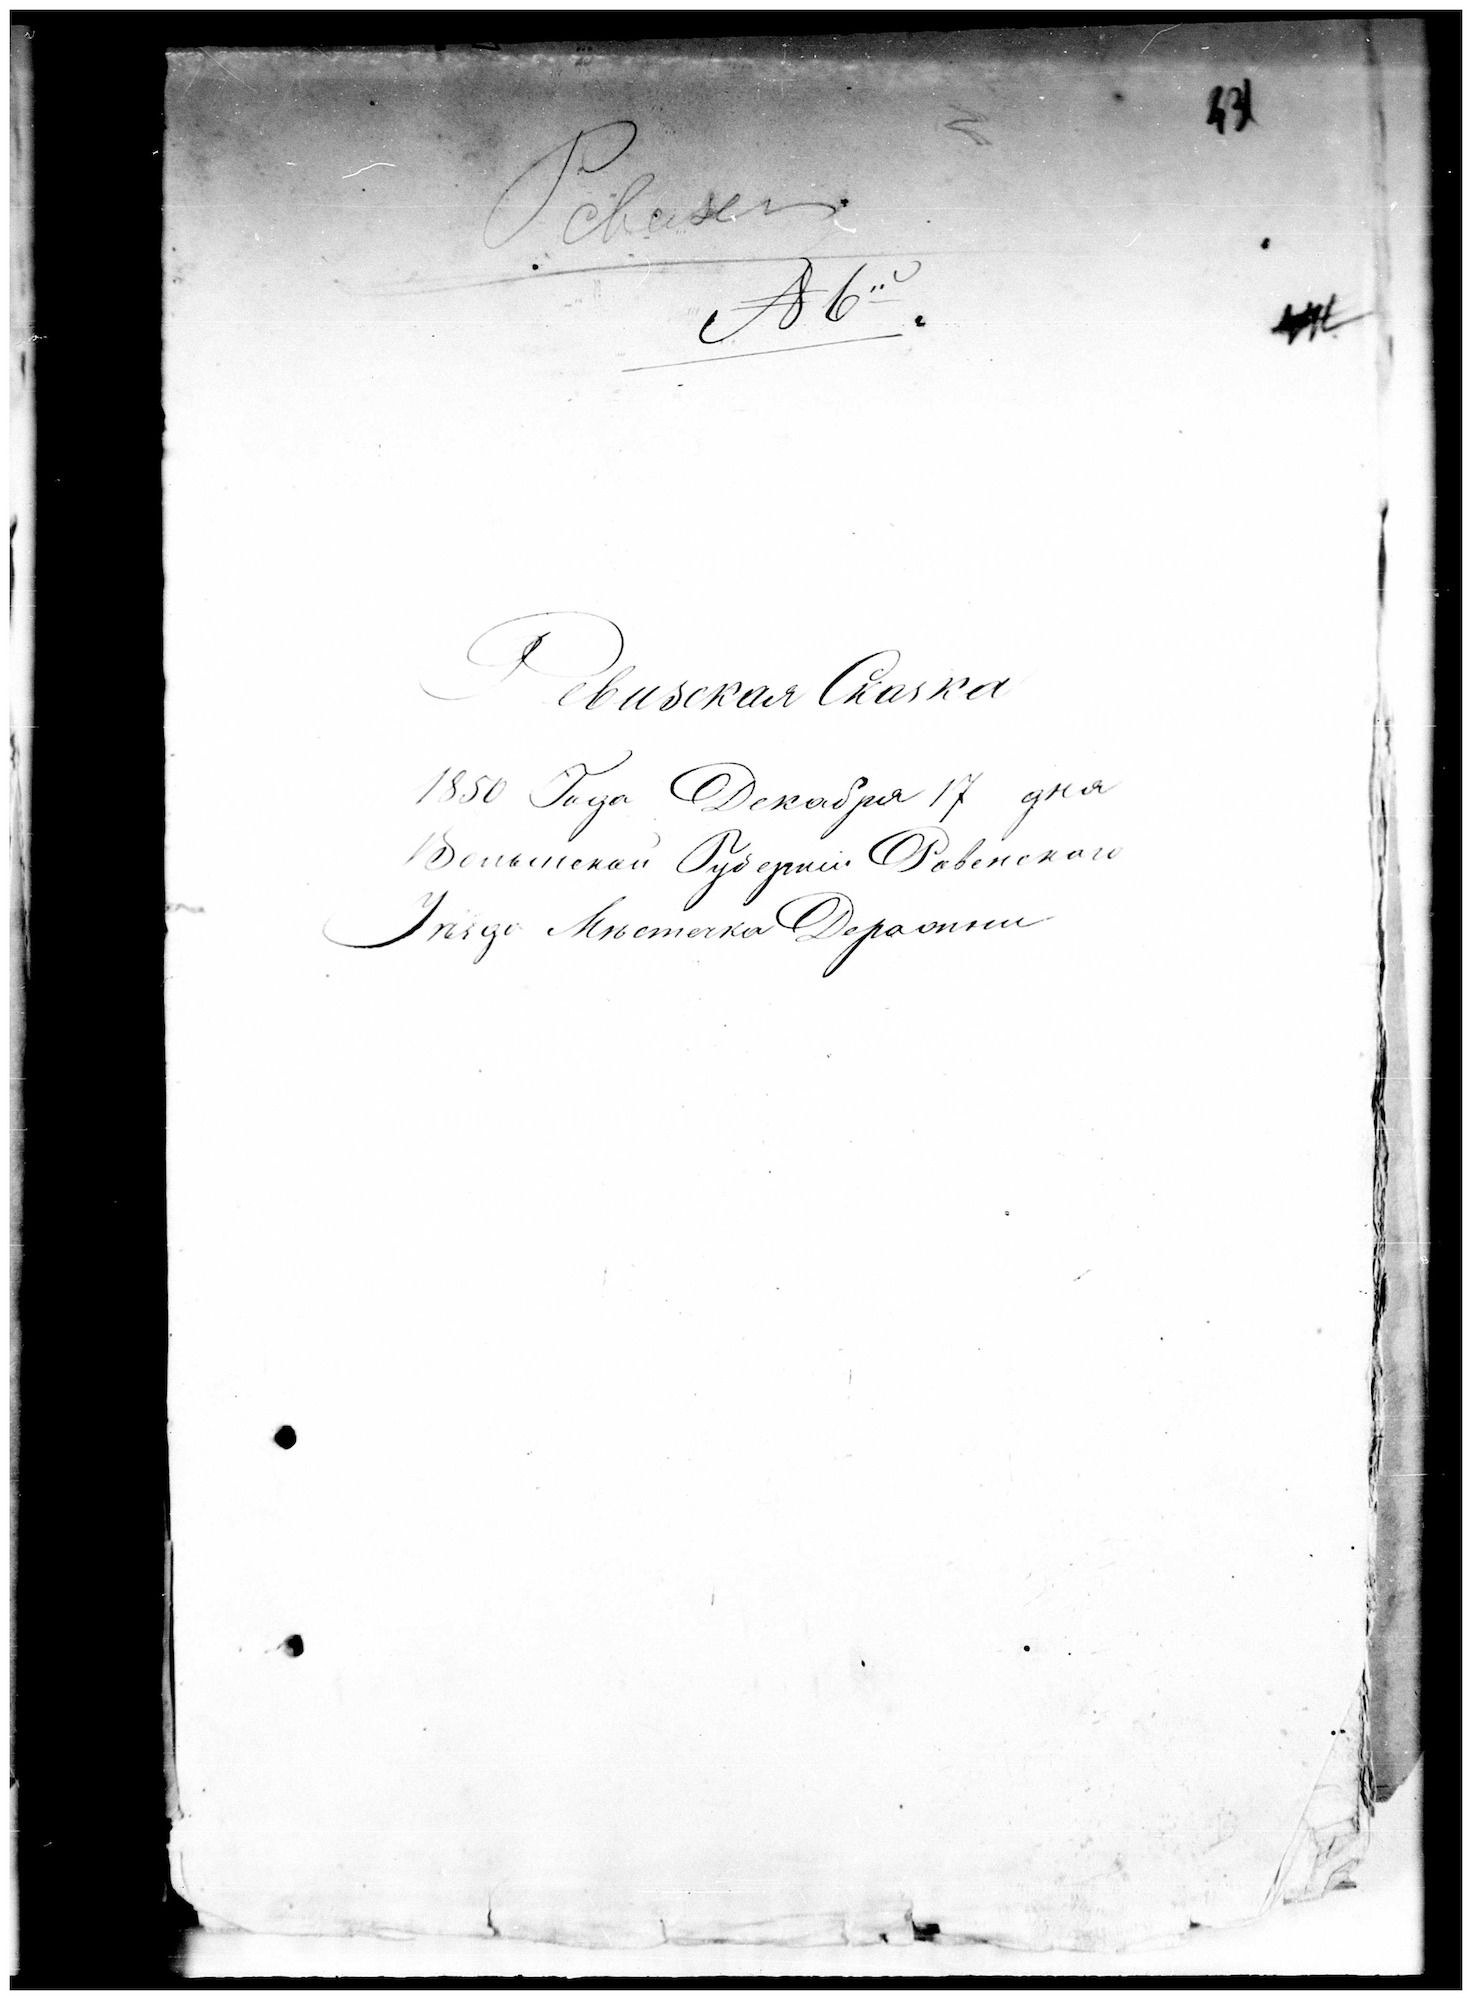 43
№ 6й.
Ревизская Сказка
1850 Года Декабря 17 дня
Волынской Губернiи Ровенского
Уѣзда Мѣстечка Деражни